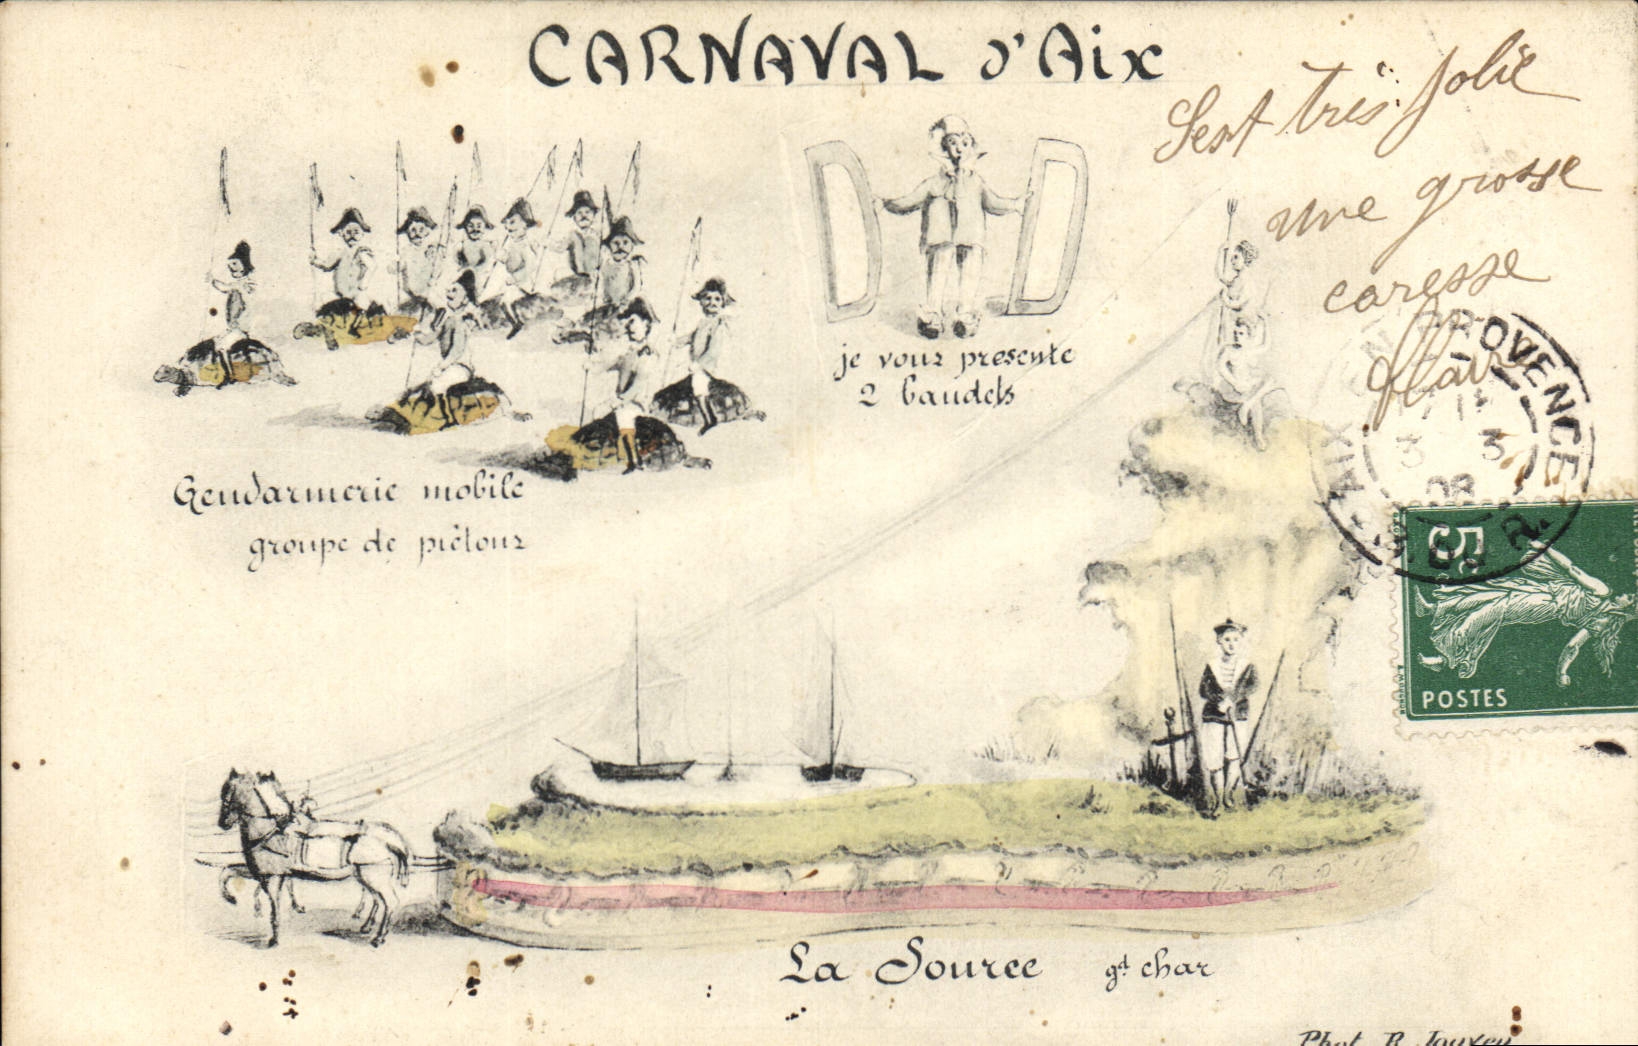 CARNAVAL d'Aix
Sest très Jolie
une grosse
caresse
je vous presente
2 baudets
Gendarmerie mobile
groupe de piétons
AIX EN PROVENCE
3
3
08
B. DU R.
5c
POSTES
La Source gd char
Phot. R. Jouxey